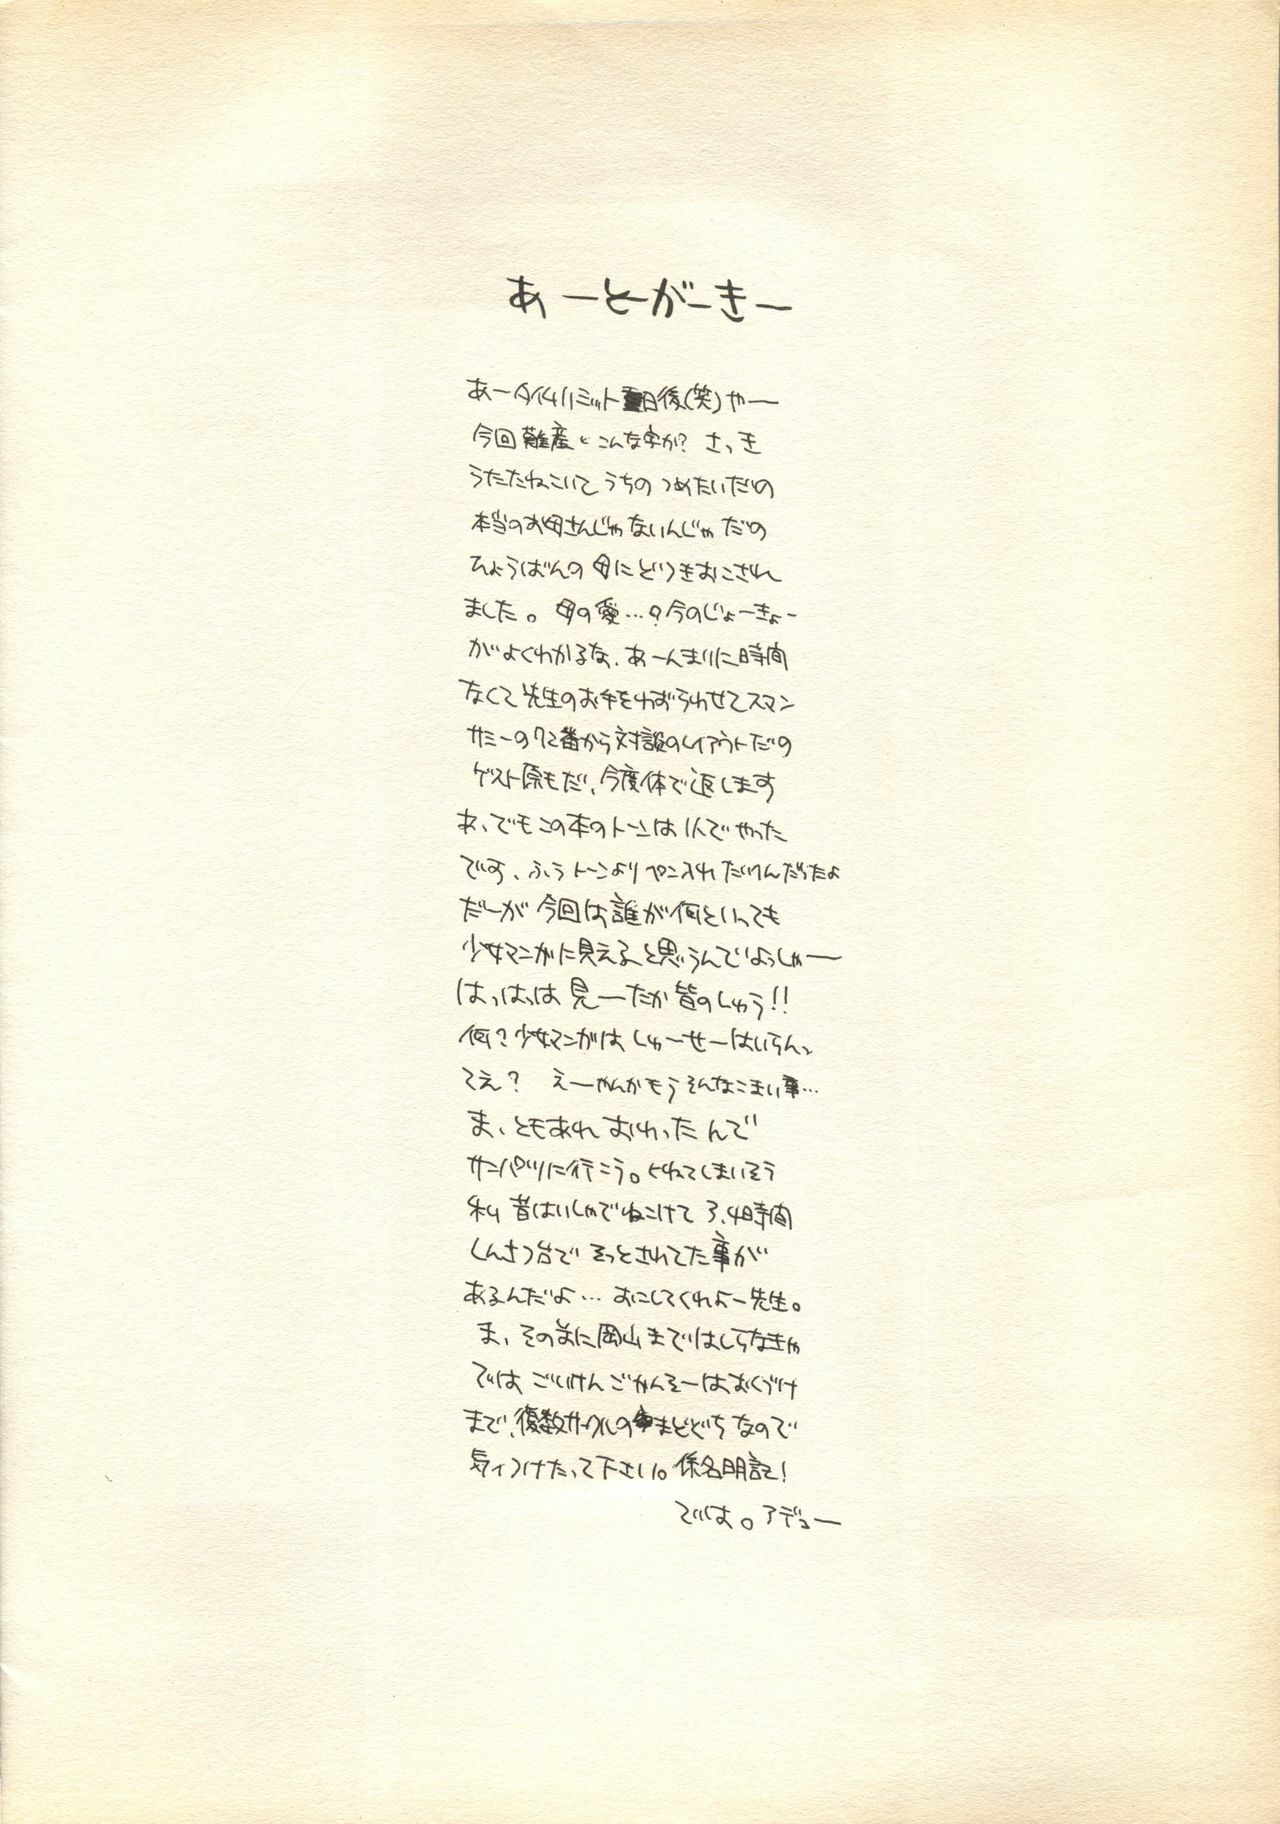 あーとがーきー
あータイムリミット重日後(笑)やー
今回難産とこんな字か? さっき
うたたねこいてうちのつめたいだの
本当のお母さんじゃないんじゃだの
ひょうばんの母にどつきおこされ
ました。母の愛…?今のじょーきょー
がよくわかるな、あーんまりに時間
なくて先生のお手をわずらわせてスマン
サミーの72番から対談のレイアウトだの
ゲスト原もだ、今度体で返します
わ、でもこの本のトーンは1人でやった
です、ふぅトーンよりペン入れだけんだったよ
だーが今回は誰が何といっても
少女マンガに見えると思うんでよっしゃー
はっはっは見ーたか皆のしゅう!!
何?少女マンガはしゅーせーはいらんっ
てえ? えーやんかもうそんなこまい事…
ま、ともあれおわったんで
サンパツに行こう。とねてしまいそう
私昔はいしゃでねこけて3、4時間
しんさつ台でそっとされてた事が
あるんだよ…おこしてくれよー先生。
ま、その前に岡山まではしらなきゃ
ではごいけんごかんそーはおくづけ
まで、復数サークルのまどぐちなので
気ィつけたって下さい。係名明記!
では。アデュー